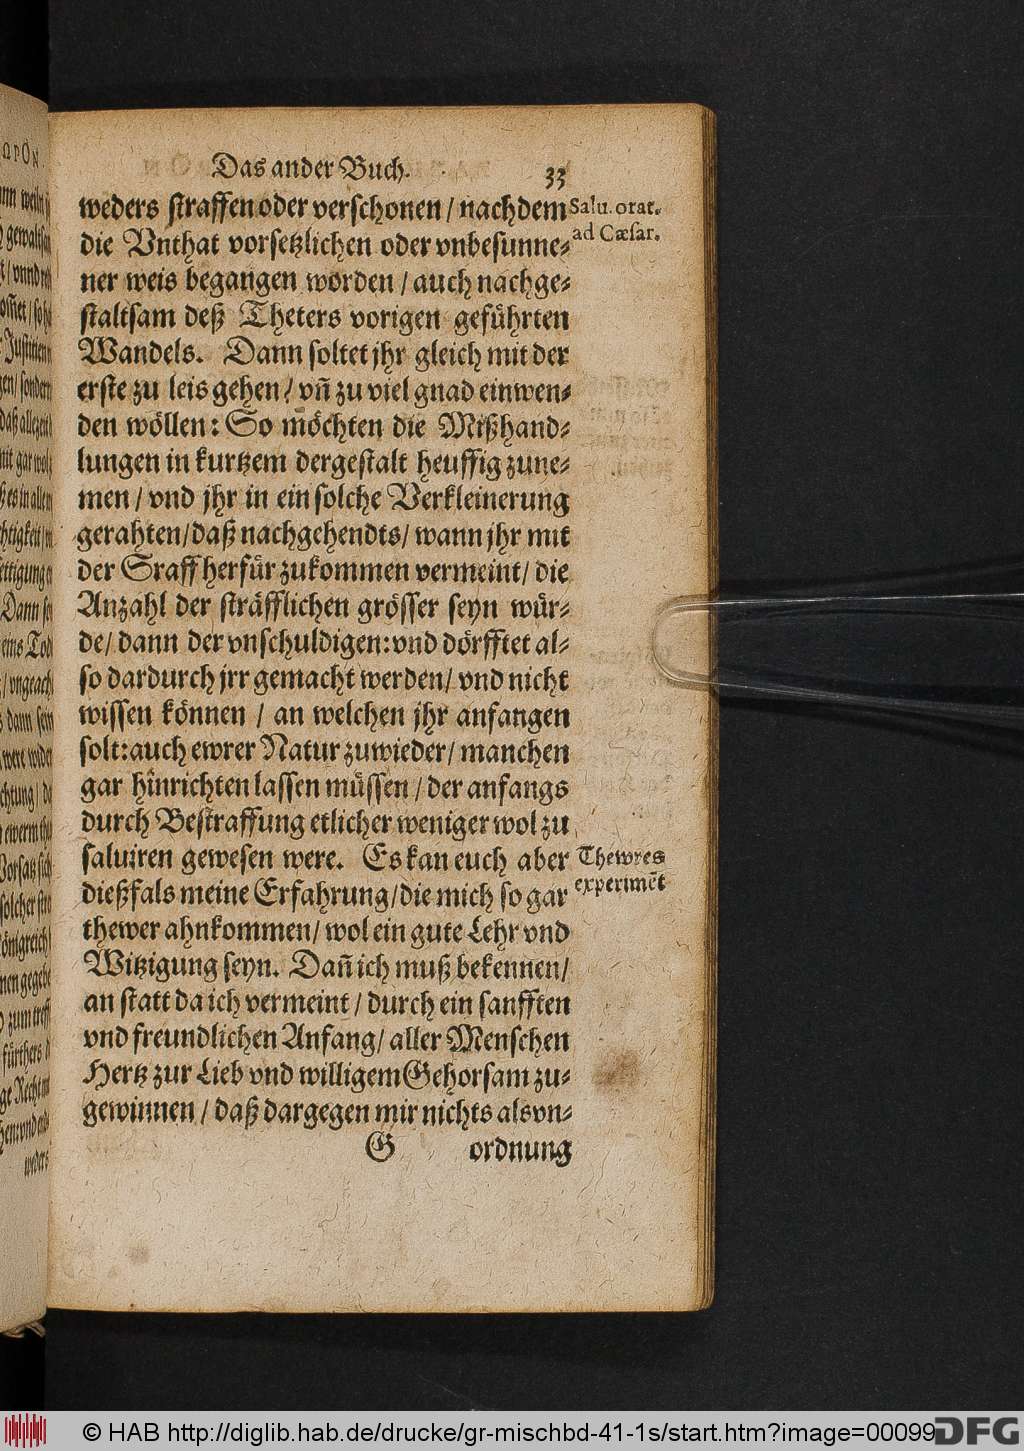 Das ander Buch. 33
weders straffen oder verschonen / nachdem
Salu. orat.
die Vnthat vorsetzlichen oder vnbesunne-
ad Cæsar.
ner weis begangen worden / auch nachge-
staltsam deß Theters vorigen geführten
Wandels. Dann soltet jhr gleich mit der
erste zu leis gehen / vñ zu viel gnad einwen-
den wöllen: So möchten die Mißhand-
lungen in kurtzem dergestalt heuffig zune-
men / vnd jhr in ein solche Verkleinerung
gerahten / daß nachgehendts / wann jhr mit
der Sraff herfür zukommen vermeint / die
Anzahl der sträfflichen grösser seyn wür-
de / dann der vnschuldigen: vnd dörfftet al-
so dardurch jrr gemacht werden / vnd nicht
wissen können / an welchen jhr anfangen
solt: auch ewrer Natur zuwieder / manchen
gar hinrichten lassen müssen / der anfangs
durch Bestraffung etlicher weniger wol zu
saluiren gewesen were. Es kan euch aber
Thewres
dießfals meine Erfahrung / die mich so gar
experimẽt
thewer ahnkommen / wol ein gute Lehr vnd
Witzigung seyn. Dañ ich muß bekennen /
an statt da ich vermeint / durch ein sanfften
vnd freundlichen Anfang / aller Menschen
Hertz zur Lieb vnd willigem Gehorsam zu-
gewinnen / daß dargegen mir nichts als vn-
G ordnung
weders
© HAB http://diglib.hab.de/drucke/gr-mischbd-41-1s/start.htm?image=00099
DFG